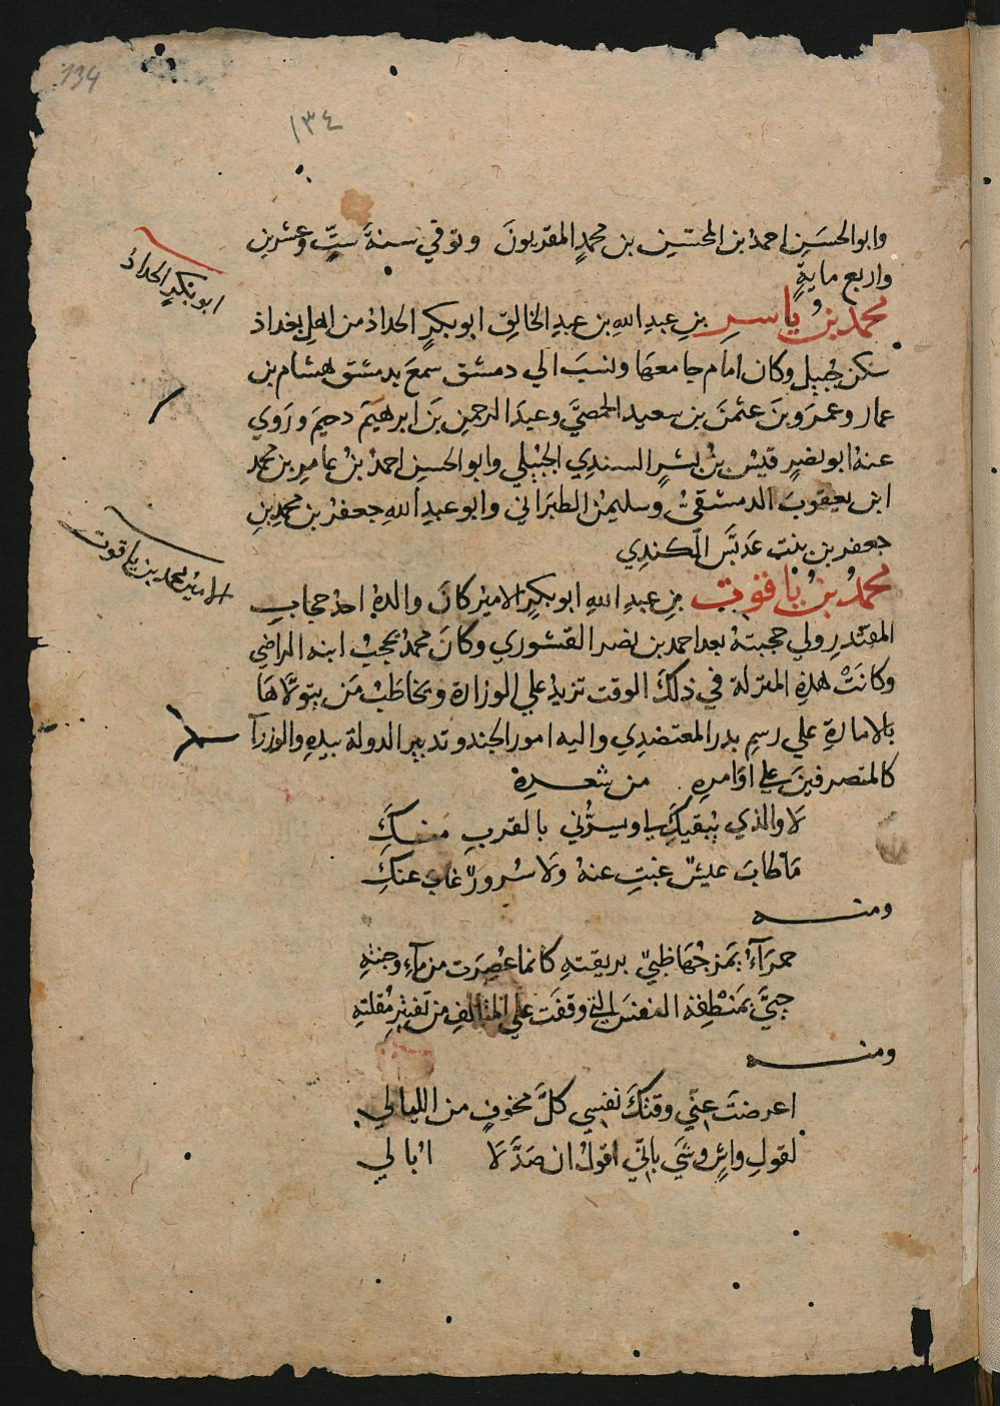 134
١٣٤
وابو الحسَين احمدُ بن المحسّين بن محمدٍ المقريونَ وتوفي سنةَ ستٍّ وعشرين
واربع مايةٍ
ابو بكرٍ الحدادُ
محمدُ بنُ ياسرِ بنِ عبدِ اللهِ بن عبدِ الخالقِ ابو بكرٍ الحدادُ من اهلِ بغداذ
سكن جُبيل وكان امام جامعهَا ونسبَ الي دمشق سمعَ بدمشق هشام بن
عمار وعمرَو بنَ عثمنَ بن سعيد الحمصيَّ وعبدَ الرحمن بنَ ابرهيمَ دحيمَ ورَوي
عنهُ ابو نضرٍ قيسُ بنُ بشرٍ السندي الجبَيلي وابو الحسن احمدُ بنُ عامرِ بن محمد
ابن يعقوبَ الدمشقيُّ وسليمنُ الطبرَاني وابو عبدِ اللهِ جعفرُ بن محمدِ بنِ
جعفر بن بنت عدبَّس الكندِي
الاميرُ محمد بن ياقوت
محمدُ بنُ ياقوتِ بنِ عبدِ اللهِ ابو بكرٍ الاميرُ كانَ والدهُ احدَ حجابِ
المقتدرِ ولي حجبتهُ بعد احمد بن نصر القشوري وكانَ محمدٌ يحجبُ ابنه الراضي
وكانَتْ هذهِ المنزلة في ذلكَ الوقت تزيدُ علي الوزارة ويخاطَبُ مَن يتولاهَا
بالامارةِ علي رسمِ بدرٍ المعتضدِي واليه امور الجند وتدبير الدولة بيدهِ والوزرآ
كالمتصرفينَ علي اوَامرهِ من شعرهِ
لَا والذي يُبقيكَِ لي ويسرُّني بالقربِ منكَِ
مَا طابَ عيشٌ غبتِ عنهُ ولَا سُرورٌ غاب عنكَِ
ومنه
حمرَآءُ يمزجُهَا ظبيٌ بريقتهِ كانما عُصِرَت من مآءِ وجنتهِ
المتَالفِ من تفتيرِ مُقلتهِ
ومنه
اعرضتَ عنّي وقتكَ نفسي كلَّ مخوفٍ من الليالي
لقولِ واشٍ وشَي باني اقولُ ان صَدَّ لَا اُبالي